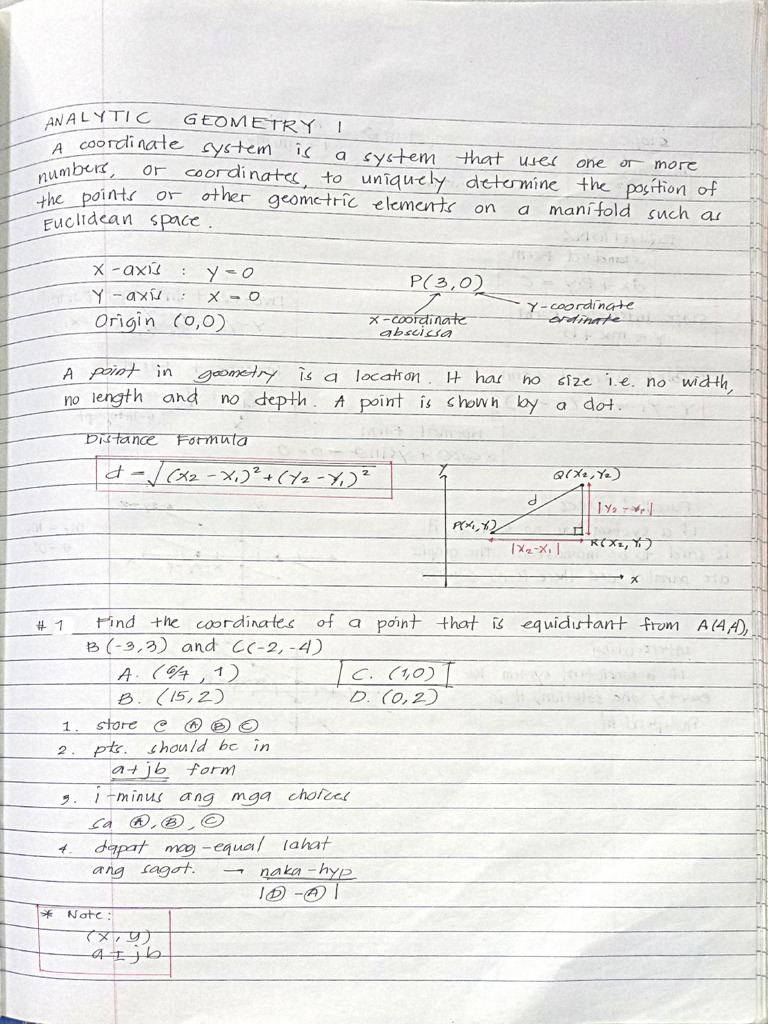 ANALYTIC GEOMETRY 1
A coordinate system is a system that uses one or more
numbers, or coordinates, to uniquely determine the position of
the points or other geometric elements on a manifold such as
Euclidean space.
X-axis : Y = 0
Y-axis : X = 0
Origin (0,0)
P(3,0)
x-coordinate
abscissa
Y-coordinate
ordinate
A point in geometry is a location. It has no size i.e. no width,
no length and no depth. A point is shown by a dot.
Distance Formula
d = √(X2 - X1)² + (Y2 - Y1)²
Y
Q(X2, Y2)
d
P(X1, Y1)
|X2 - X1|
R(X2, Y1)
x
#1 Find the coordinates of a point that is equidistant from A(4,4),
B(-3,3) and C(-2,-4)
A. (6/7, 1)
C. (1,0)
B. (15,2)
D. (0,2)
1. store @ Ⓐ Ⓑ Ⓒ
2. pts. should be in
a+jb form
3. i-minus ang mga choices
sa Ⓐ, Ⓑ, Ⓒ
4. dapat mag-equal lahat
ang sagot. → naka-hyp
|Ⓓ - Ⓐ|
* Note:
(x, y)
a ± jb